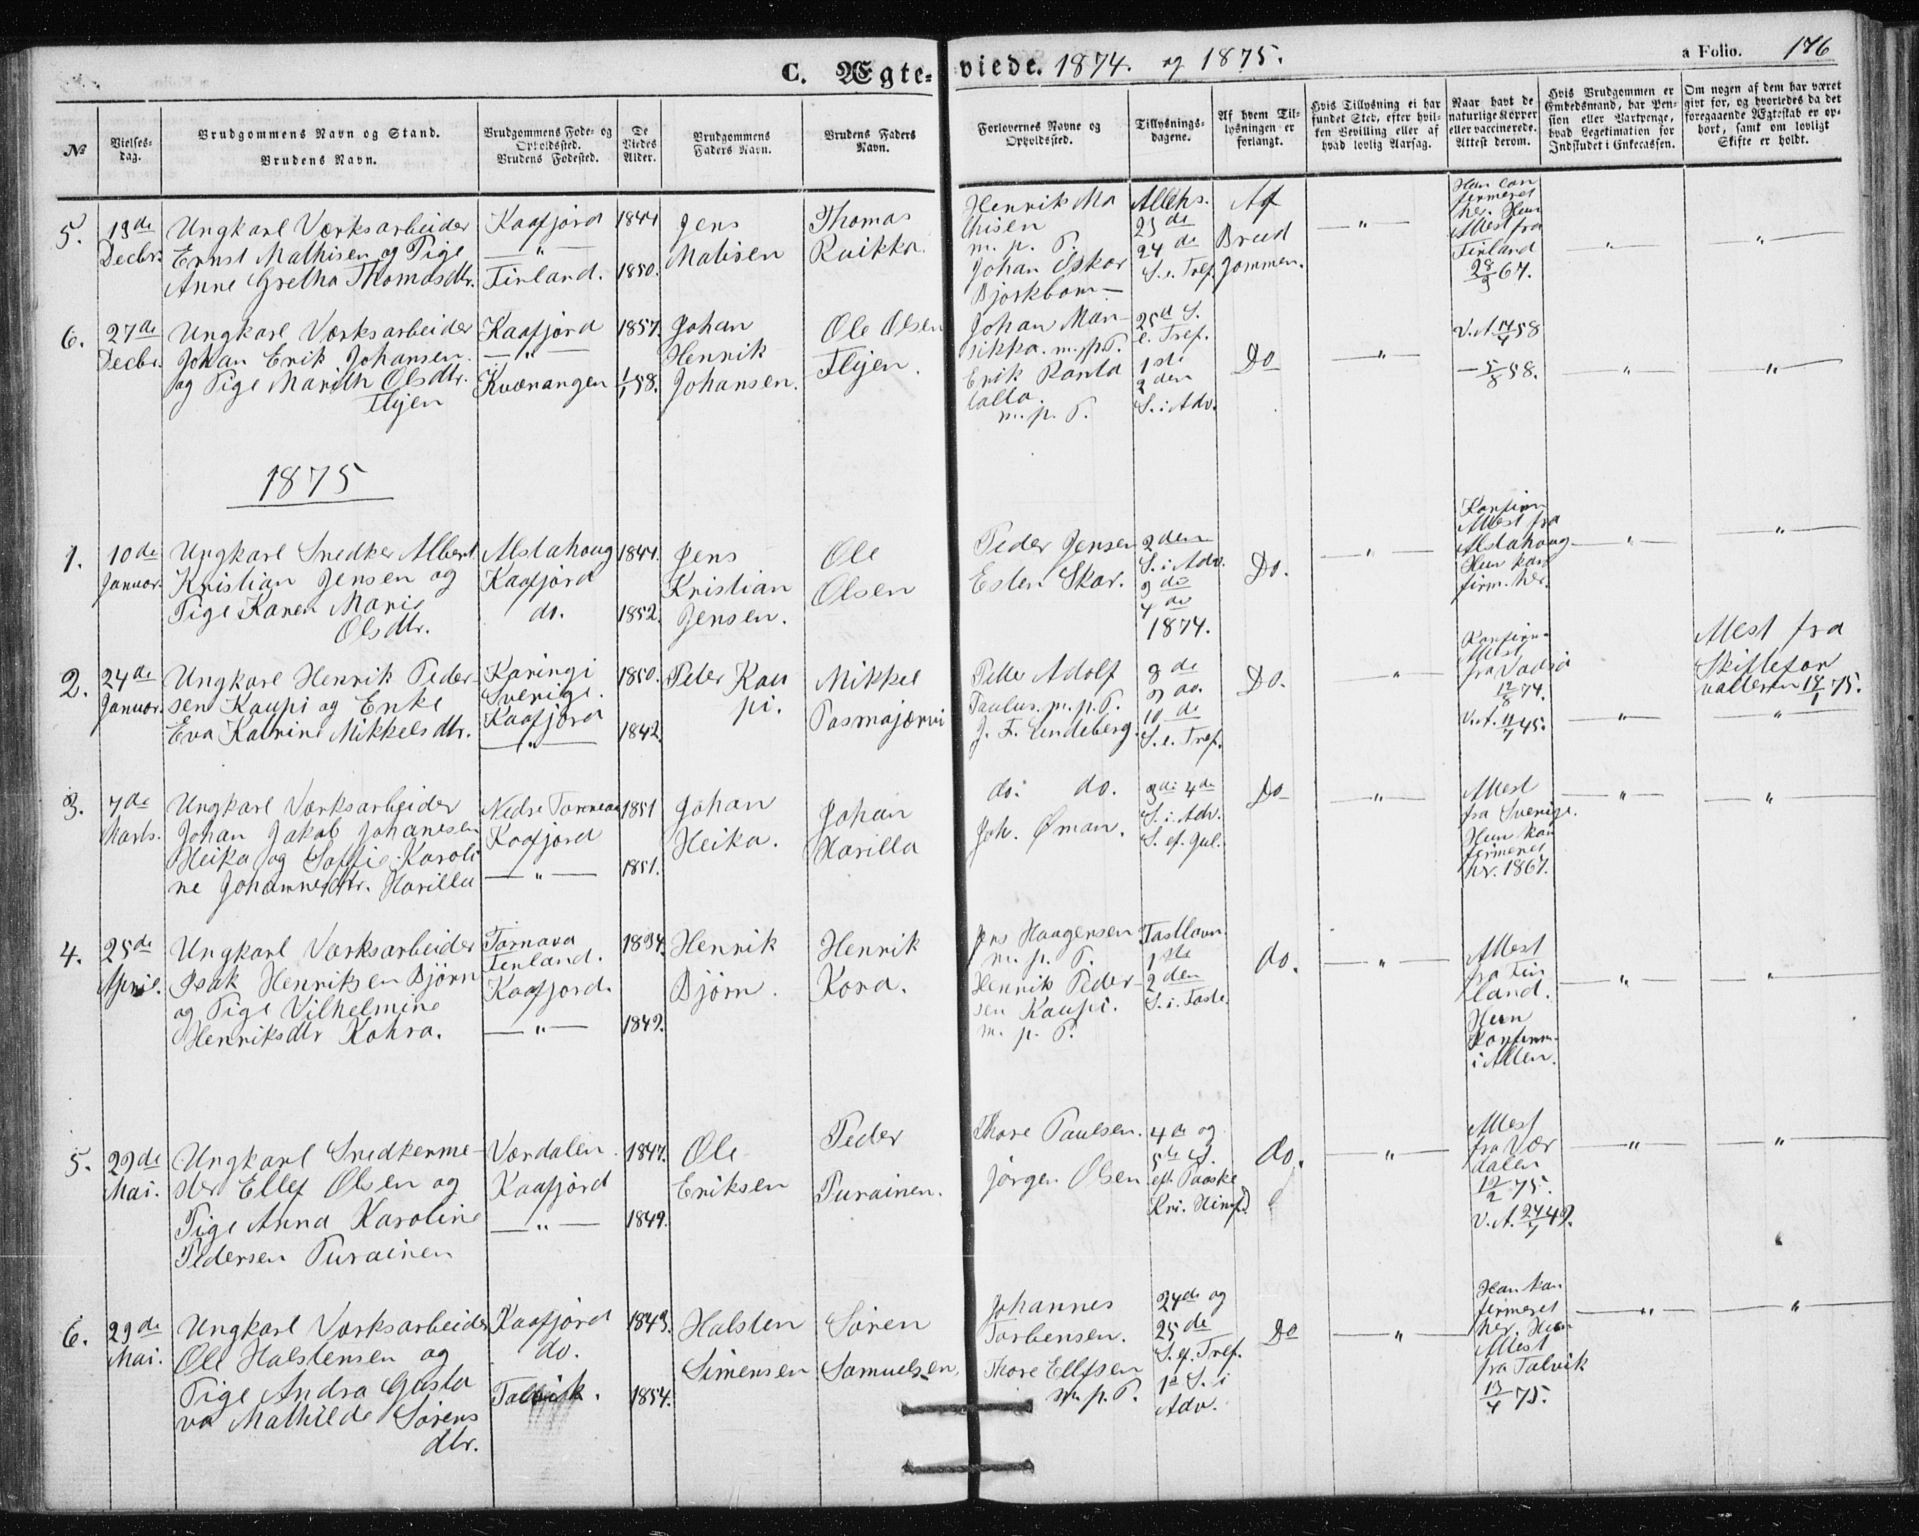 C. Ægte-viede. 1874. og 1875.
a Folio. 176
No
Vielses-
dag.
Brudgommens Navn og Stand.
Brudens Navn.
Brudgommens Føde- og
Opholdssted.
Brudens Fødested.
De
Viedes
Alder.
Brudgommens
Faders Navn.
Brudens Faders
Navn.
Forlovernes Navne og
Opholdssted.
Tillysnings-
dagene.
Af hvem Til-
lysningen er
forlangt.
Hvis Tillysning ei har
fundet Sted, efter hvil-
ken Bevilling eller af
hvad lovlig Aarsag.
Naar havt de
naturlige Kopper
eller vaccinerede.
Attest derom.
Hvis Brudgommen er
Embedsmand, har Pen-
sion eller Vartpenge,
hvad Legitimation for
Indskudet i Enkecassen.
Om nogen af dem har været
givt før, og hvorledes da det
foregaaende Ægteskab er op-
hørt, samt om lovligt
Skifte er holdt.
5.
13de
Decbr.
Ungkarl Værksarbeider
Ernst Mathisen og Pige
Anne Gretha Thomasdtr.
Kaafjord
— " —
Finland.
1844
1850.
Jens
Matisen
Thomas
Ruikka.
Henrik Ma
thisen
m. p. P.
Johan Oskar
Bjørkbom —
23de
24de
S. e. Tref.
Af
Brud
gommen.
— " —
Han con
firmeret
her. Hun
Attest fra
Finland
67.
— " —
— " —
6.
27de
Decbr.
Ungkarl Værksarbeider
Johan Erik Johansen
og Pige Marith Olsdtr.
Flyen
Kaafjord
— " —
Kvænangen
1857.
1/1 58.
Johan
Henrik
Johansen.
Ole Olsen
Flyen.
Johan Man-
sikka. m. p. P.
Erik Ranta
talla.
m. p. P.
25de S.
e. Tref.
1ste
2den
S. i Adv.
Do
— " —
V. A. 14/4 58
— 5/8 58.
— " —
— " —
1875
1.
10de
Januar.
Ungkarl Snedker Albert
Kristian Jensen og
Pige Karen Marie
Olsdtr.
Alstahoug
Kaafjord
do.
1847.
1852.
Jens
Kristian
Jensen.
Ole
Olsen
Peder Jensen
Esten Skar.
2den
S. i Adv.
3de
4de
1874.
Do.
— " —
Konfirm
Attest fra
Alstahoug
Hun kon
firm. her.
— " —
— " —
2.
24de
Januar.
Ungkarl Henrik Peder-
sen Kaupi og Enke
Eva Katrine Mikkelsdtr.
Karingi
Sverige.
Kaafjord
— " —
1850.
1842.
Peter Kau
pi.
Mikkel
Pasmajærvi
Petter Adolf
Paulus. m. p. P.
J. F. Lindeberg.
8de
9de
10de
S. e. Tref.
Do.
"
Konfirm-
Attest
fra Vadsø
12/8 74.
V. A. 11/7 45.
— " —
Attest fra
Skiftefor
valteren 18/1 75.
"
3.
7de
Marts.
Ungkarl Værksarbeider
Johan Jakob Johannesen
Heika og Soffie Karoli
ne Johannesdtr. Harilla
Nedre Torneaa
Kaafjord
— " —
1851
1851.
Johan
Heika.
Johan
Harilla
do. do.
Joh. Øman.
3de 4de
S. i Adv.
S. ef. Jul.
Do
— " —
Attest
fra Sverige.
Hun kon
firmeret
hr. 1867.
— " —
"
4.
25de
April.
Ungkarl Værksarbeider
Isak Henriksen Bjørn
og Pige Vilhelmine
Henriksdtr Kohra.
Tornava
Finland.
Kaafjord.
— " —
1834.
1849.
Henrik
Bjørn.
Henrik
Kora.
Jens Haagensen
m. p. P.
Henrik Peder-
sen Kaupi.
m. p. P.
Fastlavn
1ste
2den
S. i. Faste.
do.
— " —
Attest
fra Fin
land.
Hun
Konfirm.
i Alten.
— " —
"
5.
29de
Mai.
Ungkarl Snedkerme-
ster Ellef Olsen og
Pige Anna Karoline
Pedersen Purainen
Værdalen
Kaafjord
— " —
1847.
1849.
Ole
Eriksen
Peder
Purainen.
Thore Paulsen.
Jørgen Olsen
4de og
5te S.
ef. Paaske
Kri. Himf.
do.
— " —
Attest
fra Vær
dalen
12/2 75.
V. A. 24/7 49.
— " —
"
6.
29de
Mai.
Ungkarl Værksarbeider
Ole Halstensen og
Pige Andra Gusta
va Mathilde Sørens
dtr.
Kaafjord
do.
Talvik.
1843.
1854.
Halsten
Simensen
Søren
Samuelsen.
Johannes
Torbensen.
Thore Ellefsen
m. p. P.
24de og
25de
S. ef. Tref.
1ste S. i
Adv.
Do
— " —
Han kon
firmeret
her. Hun
Attest
fra Talvik
13/4 75.
— " —
"